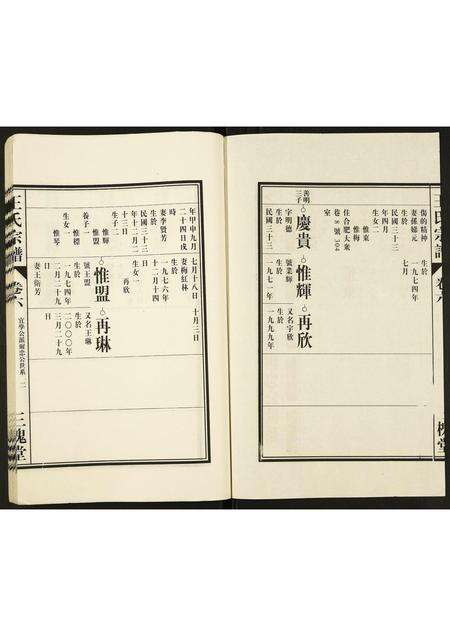 傷的精神
妻孫婦元
生於
民國三十三
年四月
惟東
惟梅
住合肥大衆
巷8號304
室
生於
一九七四年
七月
善明
三子
慶貴
字明德
生於
民國三十三
惟輝
號業輝
生於
一九七一年
再欣
又名宇欣
生於
一九九九年
年甲申九月
二十四日戌
時
妻李賢芳
生於
民國三十三
年二月初
十三日
生子二
惟輝
惟盟
養子一
惟標
生女一
惟琴
七月十八日
妻梅紅林
生於
一九七六年
十二月十四
日
生女一
再欣
惟盟
號王盟
生於
一九七四年
二月二十九
日
妻王衛芳
十月三日
再琳
又名王琳
生於
二〇〇〇年
三月二十九
日
王氏宗譜
卷六
三槐堂